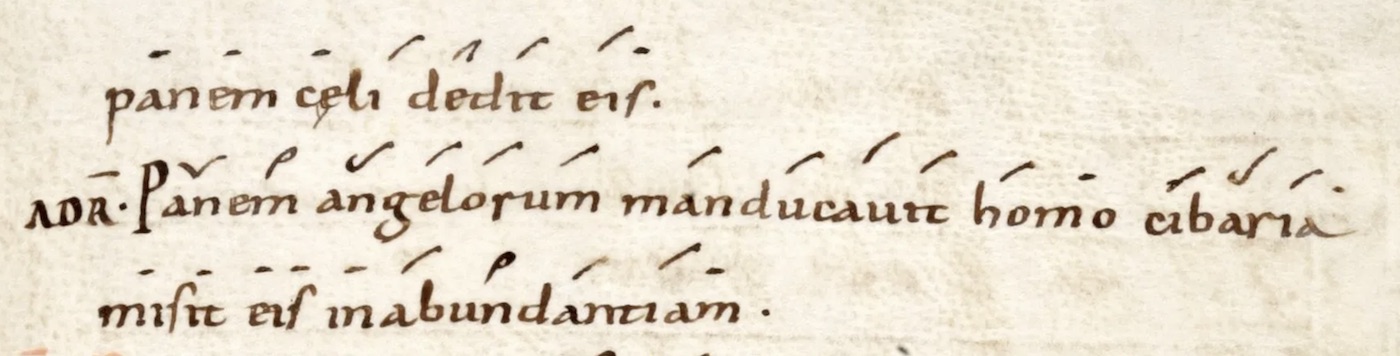 panem cęli dedit eiſ.
ADR̄· Panem angelorum manducauit homo cibaria
miſit eiſ in abundantiam .